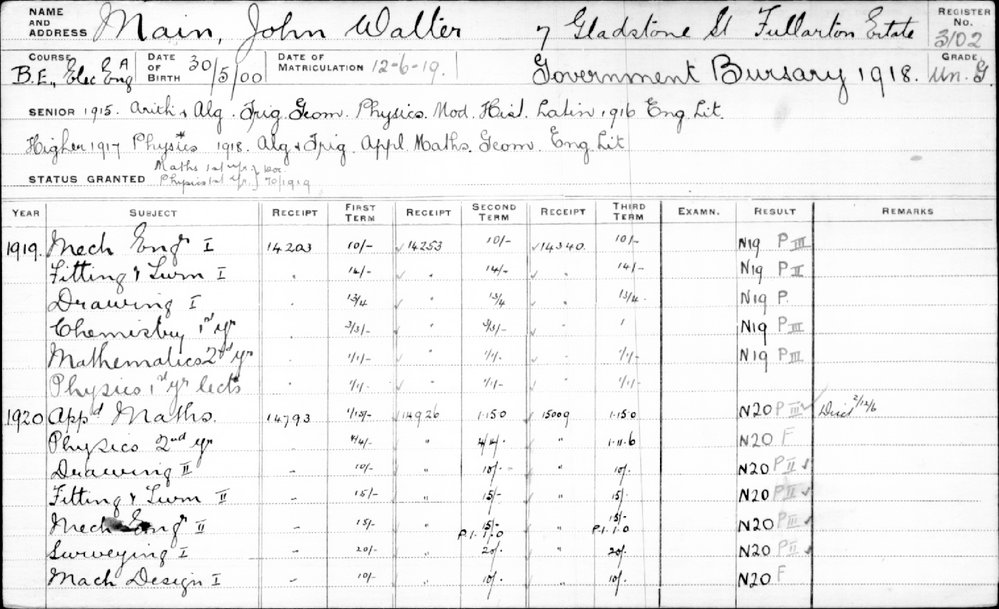 NAME AND ADDRESS Main, John Walter 7 Gladstone St Fullarton Estate REGISTER No. 3102
COURSE B.E., Elec Eng A DATE OF BIRTH 30/5/00 DATE OF MATRICULATION 12-6-19. Government Bursary 1918. GRADE Un. G.
SENIOR 1915. Arith & Alg. Trig. Geom. Physics. Mod. Hist. Latin 1916 Eng. Lit.
Higher 1917 Physics* 1918. Alg & Trig. Appl. Maths. Geom. Eng Lit
STATUS GRANTED Maths 1st yr.
Physics 1st yr. 70/1919
YEAR SUBJECT RECEIPT FIRST TERM RECEIPT SECOND TERM RECEIPT THIRD TERM EXAMN. RESULT REMARKS
1919. Mech Engr I 14203 10/- ✓ 14253 10/- ✓ 14340. 10/- N19 P III
Fitting & Turn I " 14/- ✓ " 14/- ✓ " 14/- N19 P II
Drawing I " 13/4 ✓ " 13/4 ✓ " 13/4. N19 P.
Chemistry 1st yr " 3/3/- " 3/3/- " N19 P III
Mathematics 2nd yr " 1/1/- ✓ " 1/1/- " 1/1/- N19 P III
Physics 1st yr lects " 1/1/- ✓ " 1/1/- " 1/1/-
1920 Appd Maths. 14793 1/15/- ✓ 14926 1.15.0 ✓ 15009 1.15.0 N20 P III ✓ 2/12/6
Physics 2nd yr " 4/4/- " 4/4/- " 1.11.6 N20 F
Drawing II " 10/- " 10/- " 10/- N20 P II ✓
Fitting & Turn II " 15/- " 15/- " 15/- N20 P II ✓
Mech Engr II " 15/- " 15/- " 15/- N20 P III ✓
P.1.1.0 P.1.1.0
Surveying I " 20/- " 20/- " 20/- N20 P II ✓
Mach Design I " 10/- " 10/- " 10/- N20 F